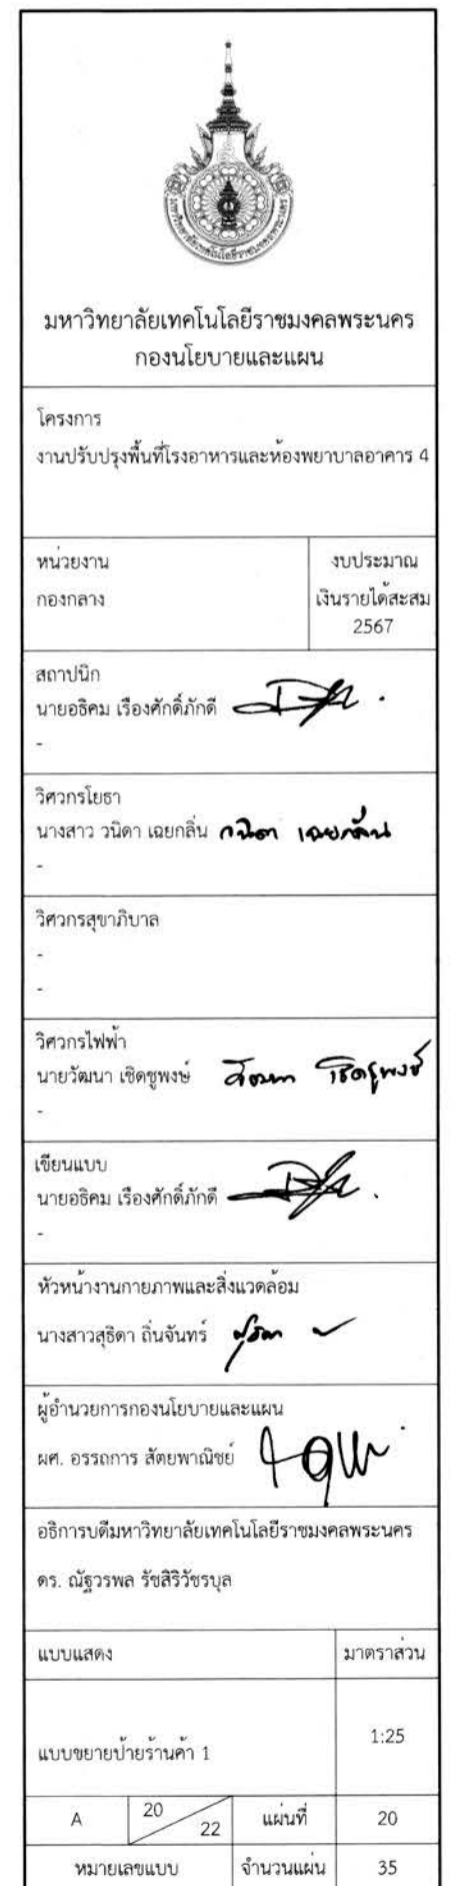 มหาวิทยาลัยเทคโนโลยีราชมงคลพระนคร
มหาวิทยาลัยเทคโนโลยีราชมงคลพระนคร
กองนโยบายและแผน
โครงการ
งานปรับปรุงพื้นที่โรงอาหารและห้องพยาบาลอาคาร 4
หน่วยงาน
กองกลาง
งบประมาณ
เงินรายได้สะสม
2567
สถาปนิก
นายอธิคม เรืองศักดิ์ภักดี
-
วิศวกรโยธา
นางสาว วนิดา เฉยกลิ่น วนิดา เฉยกลิ่น
-
วิศวกรสุขาภิบาล
-
-
วิศวกรไฟฟ้า
นายวัฒนา เชิดชูพงษ์ วัฒนา เชิดชูพงษ์
-
เขียนแบบ
นายอธิคม เรืองศักดิ์ภักดี
-
หัวหน้างานกายภาพและสิ่งแวดล้อม
นางสาวสุธิดา ถิ่นจันทร์
ผู้อำนวยการกองนโยบายและแผน
ผศ. อรรถการ สัตยพาณิชย์
อธิการบดีมหาวิทยาลัยเทคโนโลยีราชมงคลพระนคร
ดร. ณัฐวรพล รัชสิริวัชรบุล
แบบแสดง
มาตราส่วน
แบบขยายป้ายร้านค้า 1
1:25
A 20 22 แผ่นที่ 20
หมายเลขแบบ จำนวนแผ่น 35